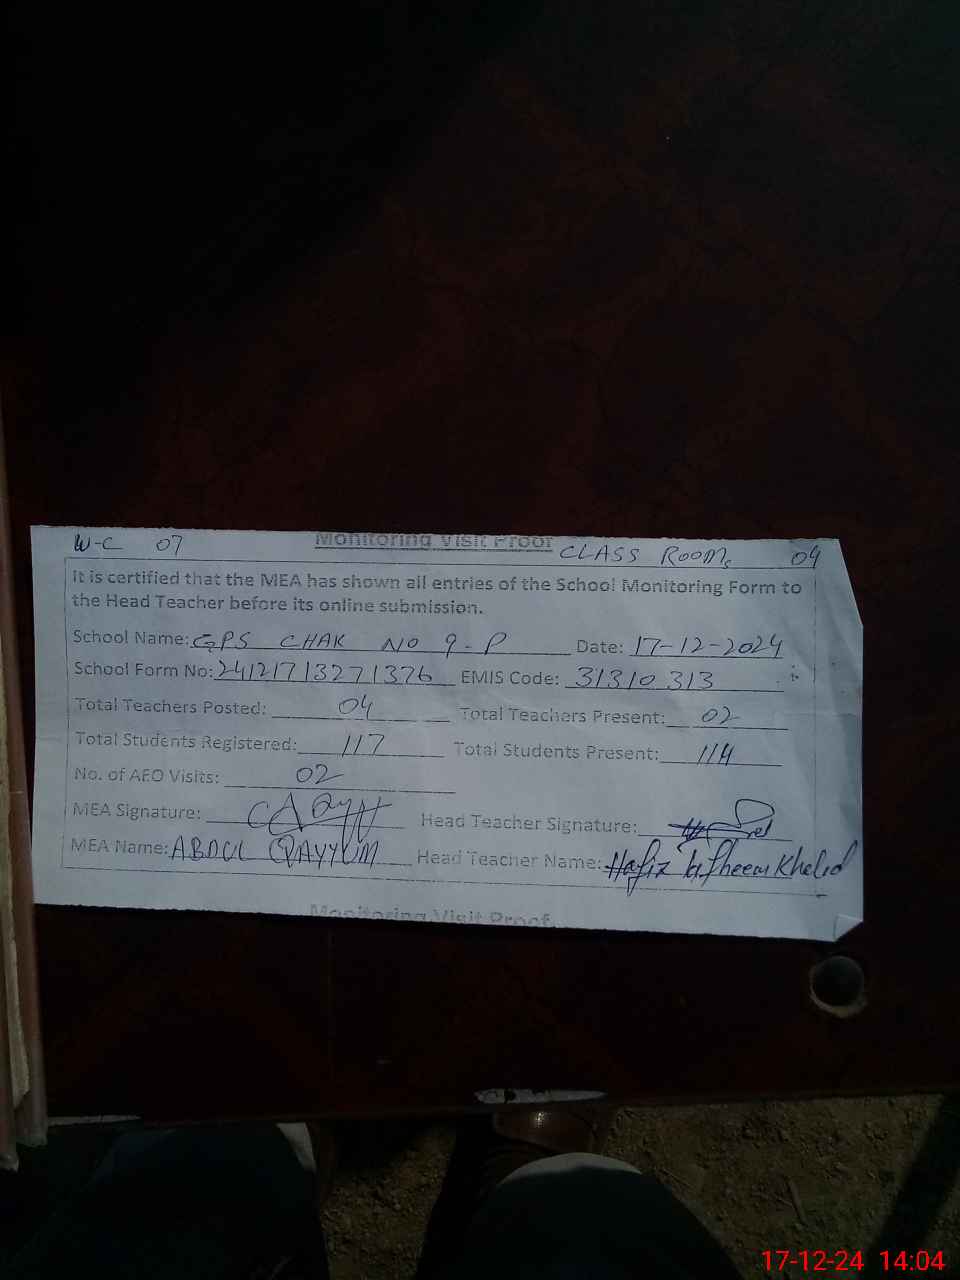 W-C 07 Monitoring Visit Proof CLASS ROOMs 04
It is certified that the MEA has shown all entries of the School Monitoring Form to
the Head Teacher before its online submission.
School Name: GPS CHAK NO 9-P Date: 17-12-2024
School Form No: 24121713271376 EMIS Code: 31310313
Total Teachers Posted: 04 Total Teachers Present: 02
Total Students Registered: 117 Total Students Present: 114
No. of AEO Visits: 02
MEA Signature: Head Teacher Signature:
MEA Name: ABDUL QAYYUM Head Teacher Name: Hafiz Khalid
Monitoring Visit Proof
17-12-24 14:04